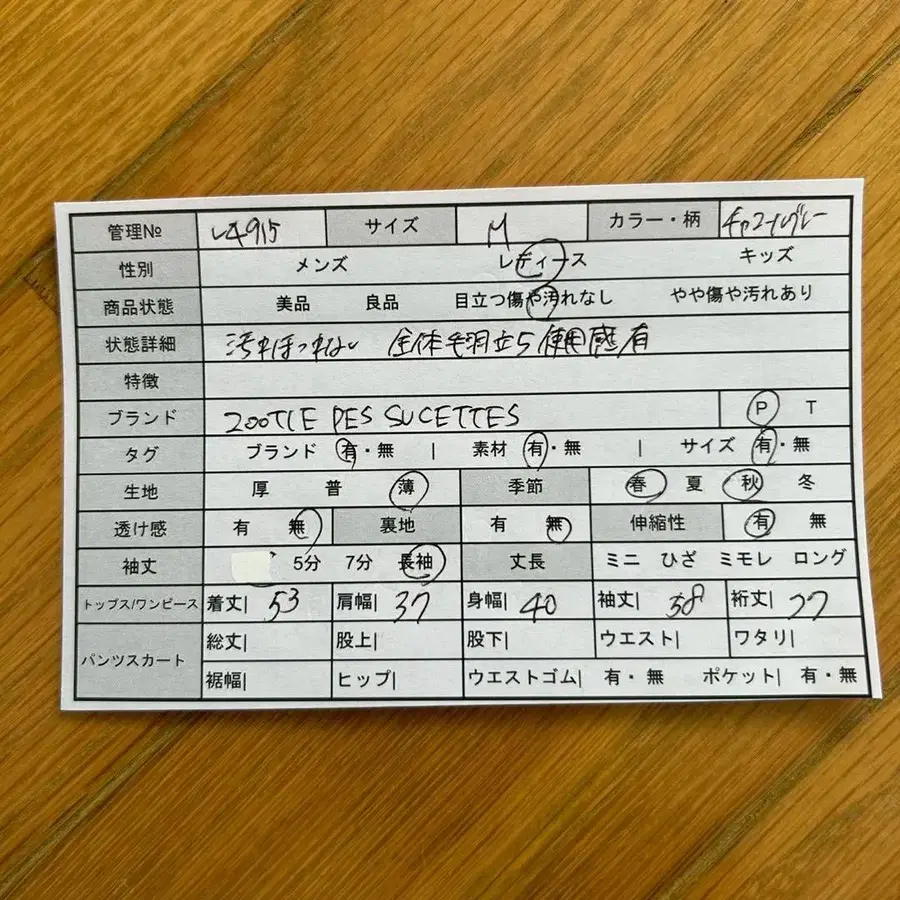 管理№ レ4915 サイズ M カラー・柄 チャコールグレー
性別 メンズ レディース キッズ
商品状態 美品 良品 目立つ傷や汚れなし やや傷や汚れあり
状態詳細 汚れほつれない 全体毛羽立ち使用感有
特徴
ブランド ZOOTIE DES SUCETTES P T
タグ ブランド 有・無 | 素材 有・無 | サイズ 有・無
生地 厚 普 薄 季節 春 夏 秋 冬
透け感 有 無 裏地 有 無 伸縮性 有 無
袖丈 5分 7分 長袖 丈長 ミニ ひざ ミモレ ロング
トップス/ワンピース 着丈| 53 肩幅| 37 身幅| 40 袖丈| 58 裄丈| 77
パンツスカート 総丈| 股上| 股下| ウエスト| ワタリ|
裾幅| ヒップ| ウエストゴム| 有・無 ポケット| 有・無